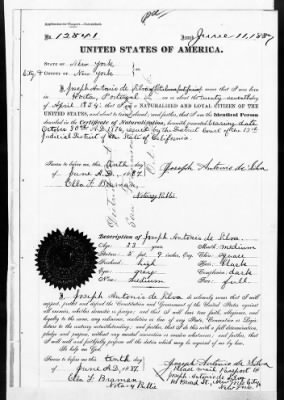 No. 12841 Issued June 11, 1887
UNITED STATES OF AMERICA.
STATE OF New York
City & COUNTY OF New York
I, Joseph Antonio da Silva, do swear that I was born
in Horta, Portugal on or about the twenty-seventh day
of April 1864; that I am a NATURALIZED AND LOYAL CITIZEN OF THE
UNITED STATES, and about to travel abroad; and further, that I am the Identical Person
described in the Certificate of Naturalization, herewith presented bearing date
October 30th A.D. 1886, issued by the District Court of the 13th
Judicial District of the State of California.
Sworn to before me this tenth day
of June A.D. 1887
Ella F. Braman,
Notary Public
Joseph Antonio da Silva
Description of Joseph Antonio da Silva
Age: 23 years Mouth: medium
Stature: 5 feet 9 inches, Eng. Chin: small
Forehead: high Hair: black
Eyes: gray Complexion: dark
Nose: medium Face: full
I, Joseph Antonio da Silva do solemnly swear that I will
support, protect and defend the Constitution and Government of the United States against
all enemies, whether domestic or foreign; and that I will bear true faith, allegiance, and
loyalty to the same, any ordinance, resolution or law of any State, Convention or Legislature
to the contrary notwithstanding; and further, that I do this with a full determination,
pledge and purpose, without any mental reservation or evasion whatsoever; and further, that
I will well and faithfully perform all the duties which may be required of me by law.
So help me God.
Sworn to before me this tenth day
of June A.D. 1887.
Ella F. Braman
Notary Public
Joseph Antonio da Silva
Please mail Passport to
Joseph Antonio da Silva
New York City
New York